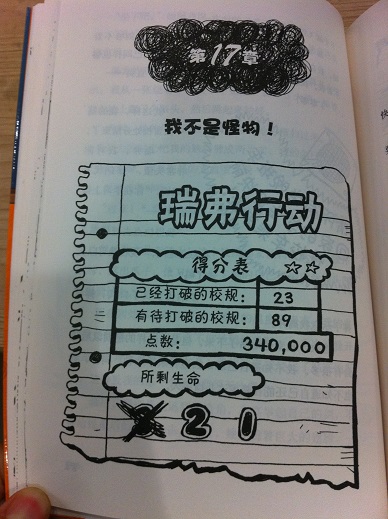 第17章
我不是怪物！
瑞弗行动
得分表 ☆☆
已经打破的校规： 23
有待打破的校规： 89
点数： 340,000
所剩生命
3 2 1